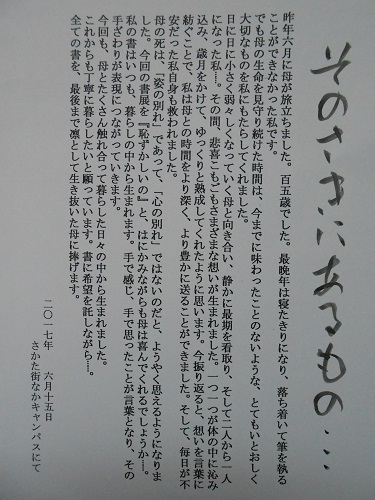 そのさきにあるもの…
昨年六月に母が旅立ちました。百五歳でした。最晩年は寝たきりになり、落ち着いて筆を執る
ことができなかった私です。
でも母の生命を見守り続けた時間は、今までに味わったことのないような、とてもいとおしく
大切なものを私にもたらしてくれました。
日に日に小さく弱々しくなっていく母と向き合い、静かに最期を看取り、そして二人から一人
になった私…。その間、悲喜こもごもさまざまな想いが生まれました。一つ一つが体の中に沁み
込み、歳月をかけて、ゆっくりと熟成してくれたように思います。今振り返ると、想いを言葉に
紡ぐことで、私は母との時間をより深く、より豊かに送ることができました。そして、毎日が不
安だった私自身も救われました。
母の死は、「姿の別れ」であって、「心の別れ」ではないのだと、ようやく思えるようになりま
した。今回の書展を『恥ずかしいの』と、はにかみながらも母は喜んでくれるでしょうか…。
私の書はいつも、暮らしの中から生まれます。手で感じ、手で思ったことが言葉となり、その
手ざわりが表現につながっていきます。
今回も、母とたくさん触れ合って暮らした日々の中から生まれました。
これからも丁寧に暮らしたいと願っています。書に希望を託しながら…。
全ての書を、最後まで凛として生き抜いた母に捧げます。
二〇一七年 六月十五日
さかた街なかキャンパスにて